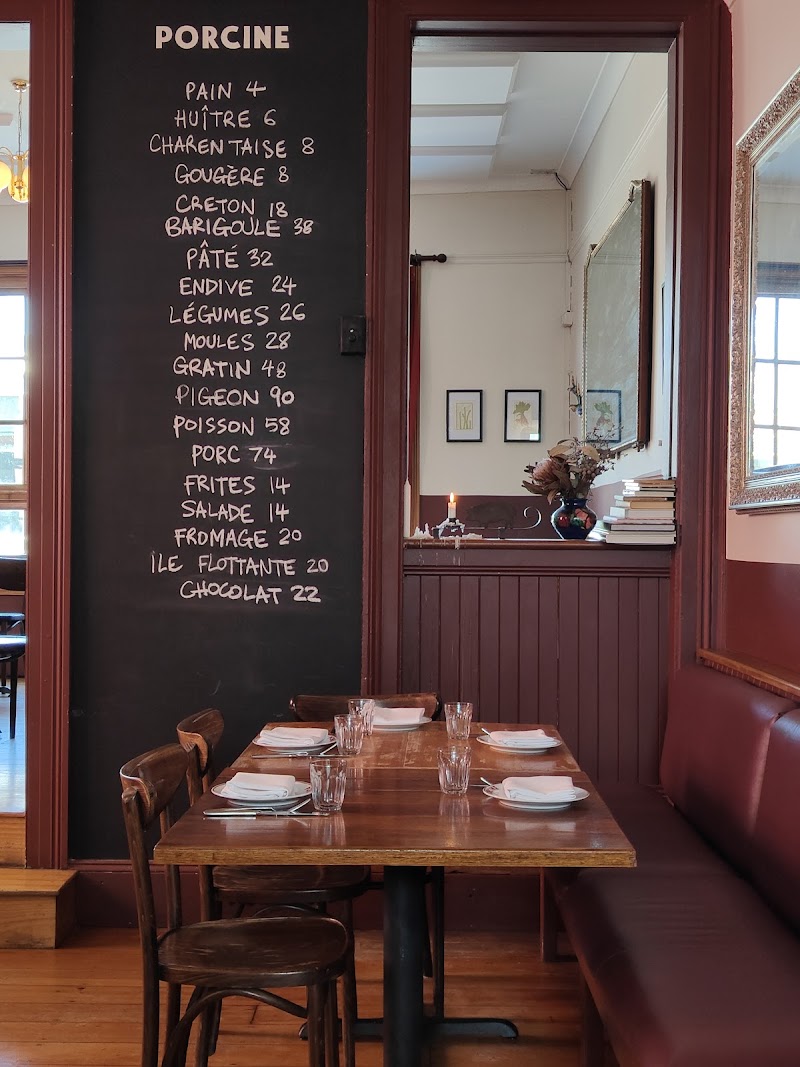 PORCINE
PAIN 4
HUÎTRE 6
CHARENTAISE 8
GOUGÈRE 8
CRETON 18
BARIGOULE 38
PÂTÉ 32
ENDIVE 24
LÉGUMES 26
MOULES 28
GRATIN 48
PIGEON 90
POISSON 58
PORC 74
FRITES 14
SALADE 14
FROMAGE 20
ÎLE FLOTTANTE 20
CHOCOLAT 22